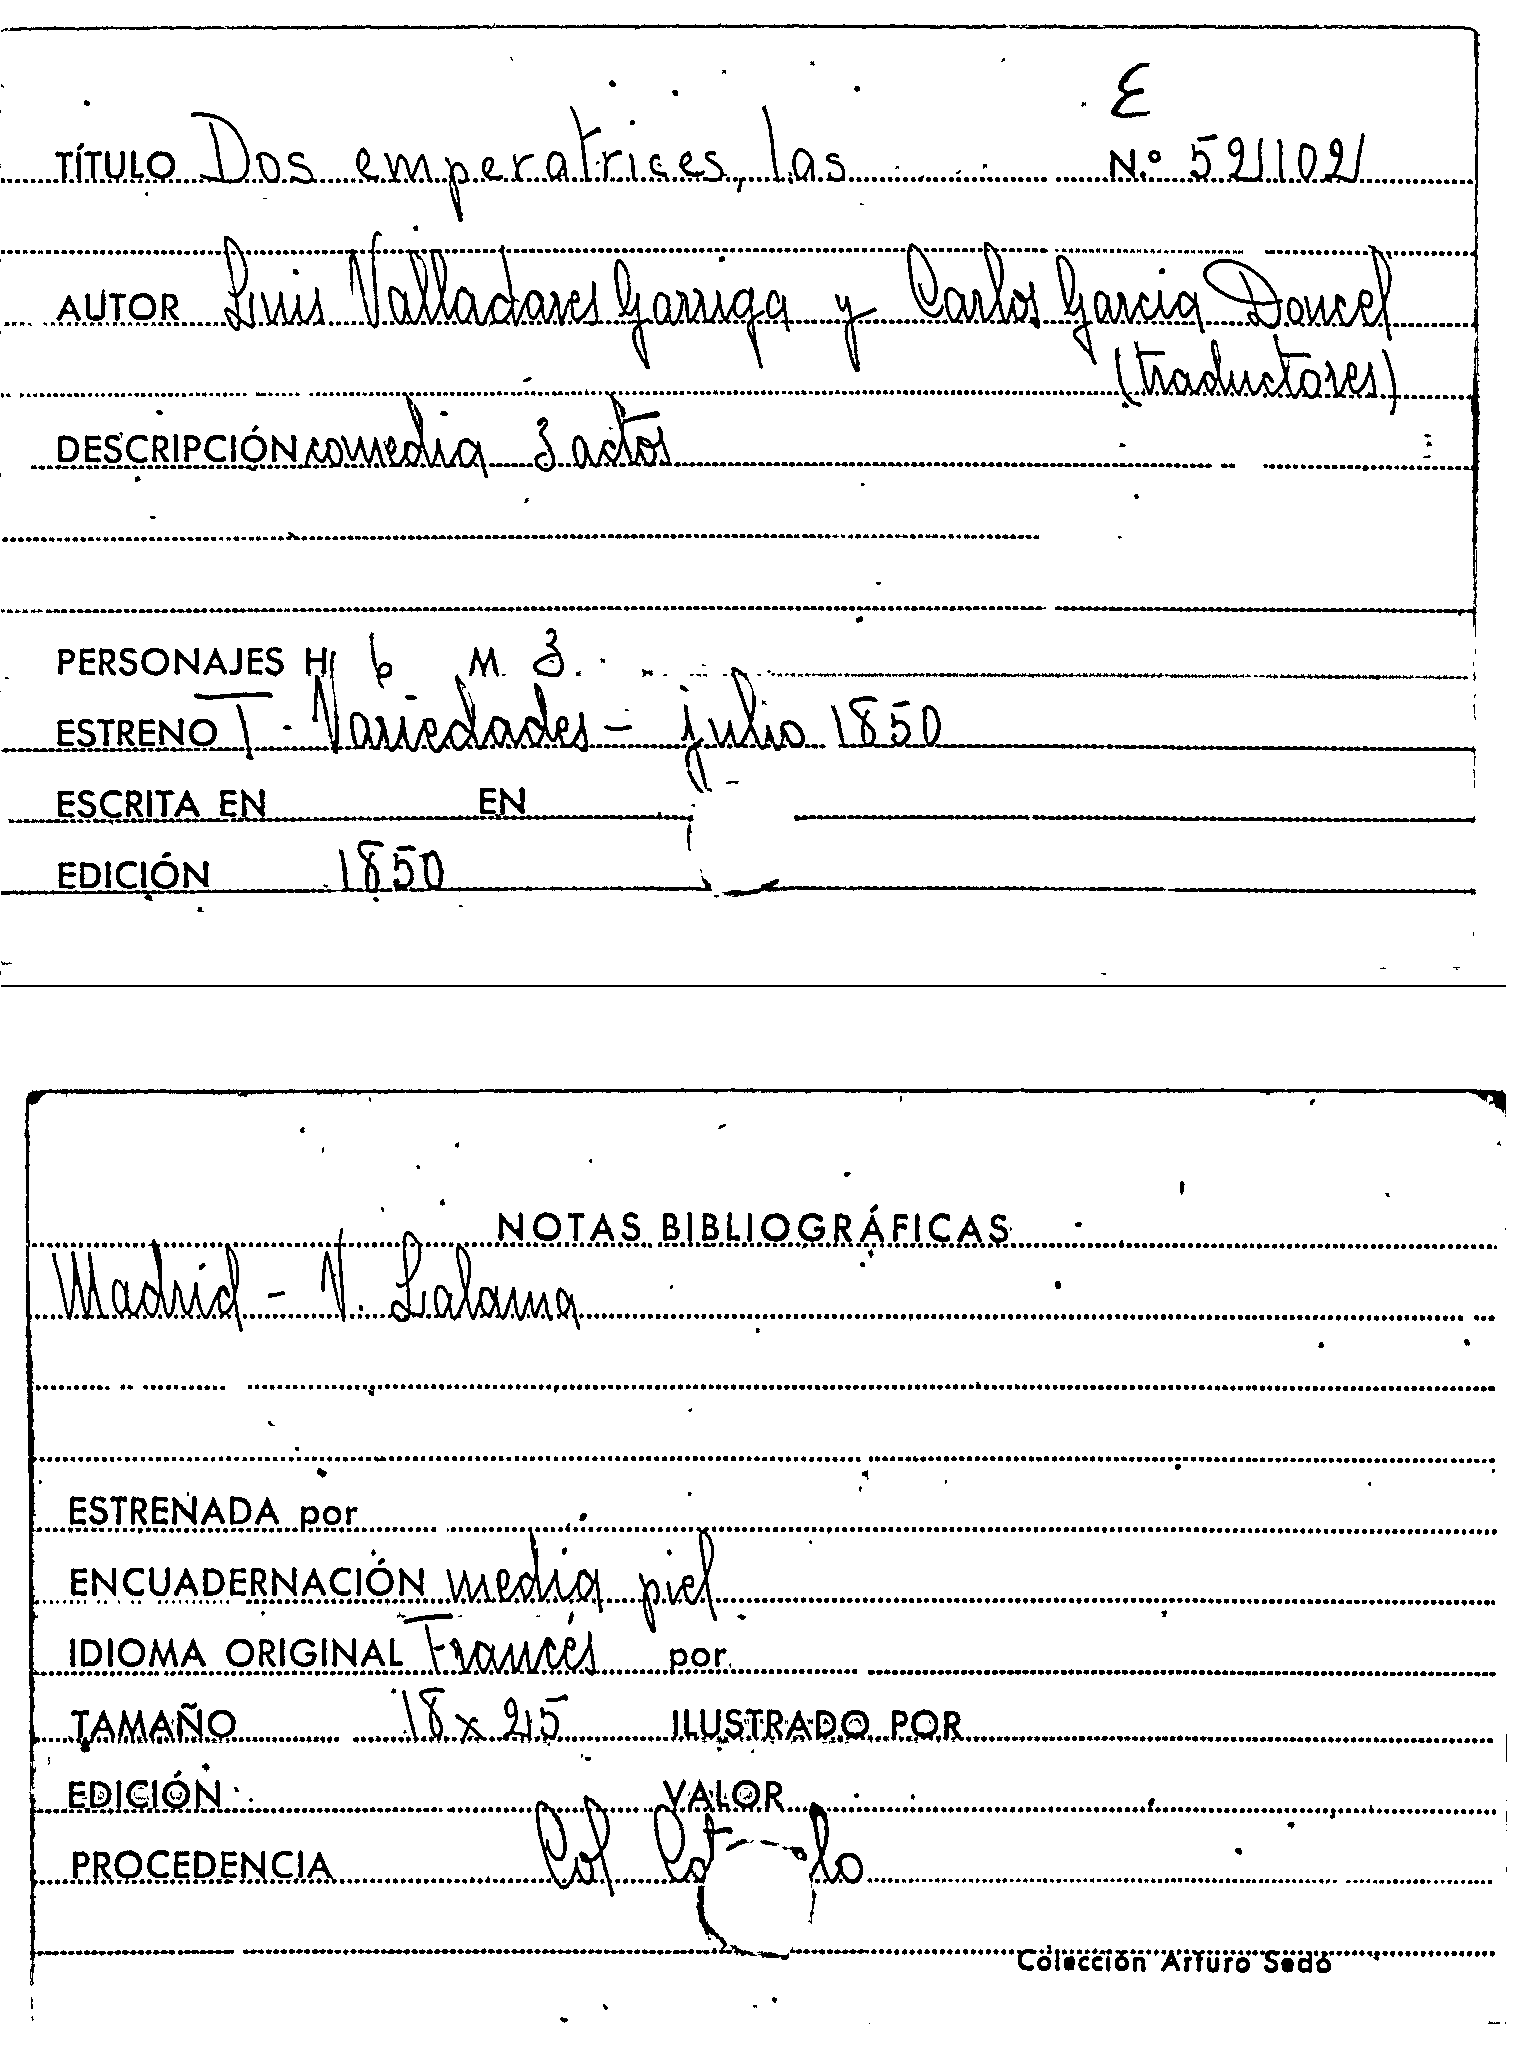 E
TÍTULO Dos emperatrices, las N.º 52102
AUTOR Luis Valladares Garriga y Carlos García Doncel
(traductores)
DESCRIPCIÓN comedia 3 actos
PERSONAJES H 6 M 3
ESTRENO T. Variedades - julio 1850
ESCRITA EN EN
EDICIÓN 1850
NOTAS BIBLIOGRÁFICAS
Madrid - V. Lalama
ESTRENADA por
ENCUADERNACIÓN media piel
IDIOMA ORIGINAL Francés por
TAMAÑO 18 x 25 ILUSTRADO POR
EDICIÓN VALOR
PROCEDENCIA Col
Colección Arturo Sedó